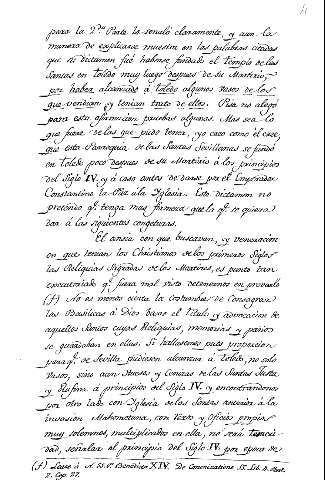 para la 2.da Parte lo señaló claramente, y aun la
manera de explicarse muestra en las palabras citadas
que su dictamen fué haberse fundado el templo de las
Santas en toledo muy luego despues de su Martirio,
por haber alcanzado á toledo algunos vasos de los
que vendian y tenian trato de ellos. Pisa no alegó
para esto afirmacion pruebas algunas. Mas sea lo
que fuere de las que pudo tener, yo caso como él cree,
que esta Parroquia de las Santas Sevillanas se fundó
en toledo poco despues de su Martirio á los principios
del Siglo IV. y á caso antes de darse por el Emperador
Constantino la Paz á la Iglesia. Este dictamen no
pretendo q.e tenga mas firmeza que la q.e se quiera
dar á las siguientes congeturas.
El ansia con que buscavan, y veneracion
en que tenian los Christianos de los primeros Siglos
las Reliquias Sagradas de los Martires, es punto tan
executoriado q.e fuera mal visto detenernos en provarlo
(f) No es menos cierta la costumbre de Consagrar
las Basilicas á Dios baxo el Titulo y advocacion de
aquellos Santos cuyas Reliquias, memorias, y paños
se guardaban en ellas. Si hallasemos pues proporcion
para q.e de Sevilla pudiesen alcanzar á toledo, no solo
vasos, sino aun Huesos y Cenizas de las Santas Justa
y Rufina á principios del Siglo IV. y encontrandonos
por otro lado con Iglesia de las Santas anterior á la
invasion Mahometana, con Texto y Oficio propios
muy solemnes, multiplicados en ella, no será temeri-
dad, señalar al principio del Siglo IV. por epoca de
(f) Lease á N. SS. P.e Benedicto XIV. De Canonizatione SS. Lib. 4. Part.
2. Cap. 27.